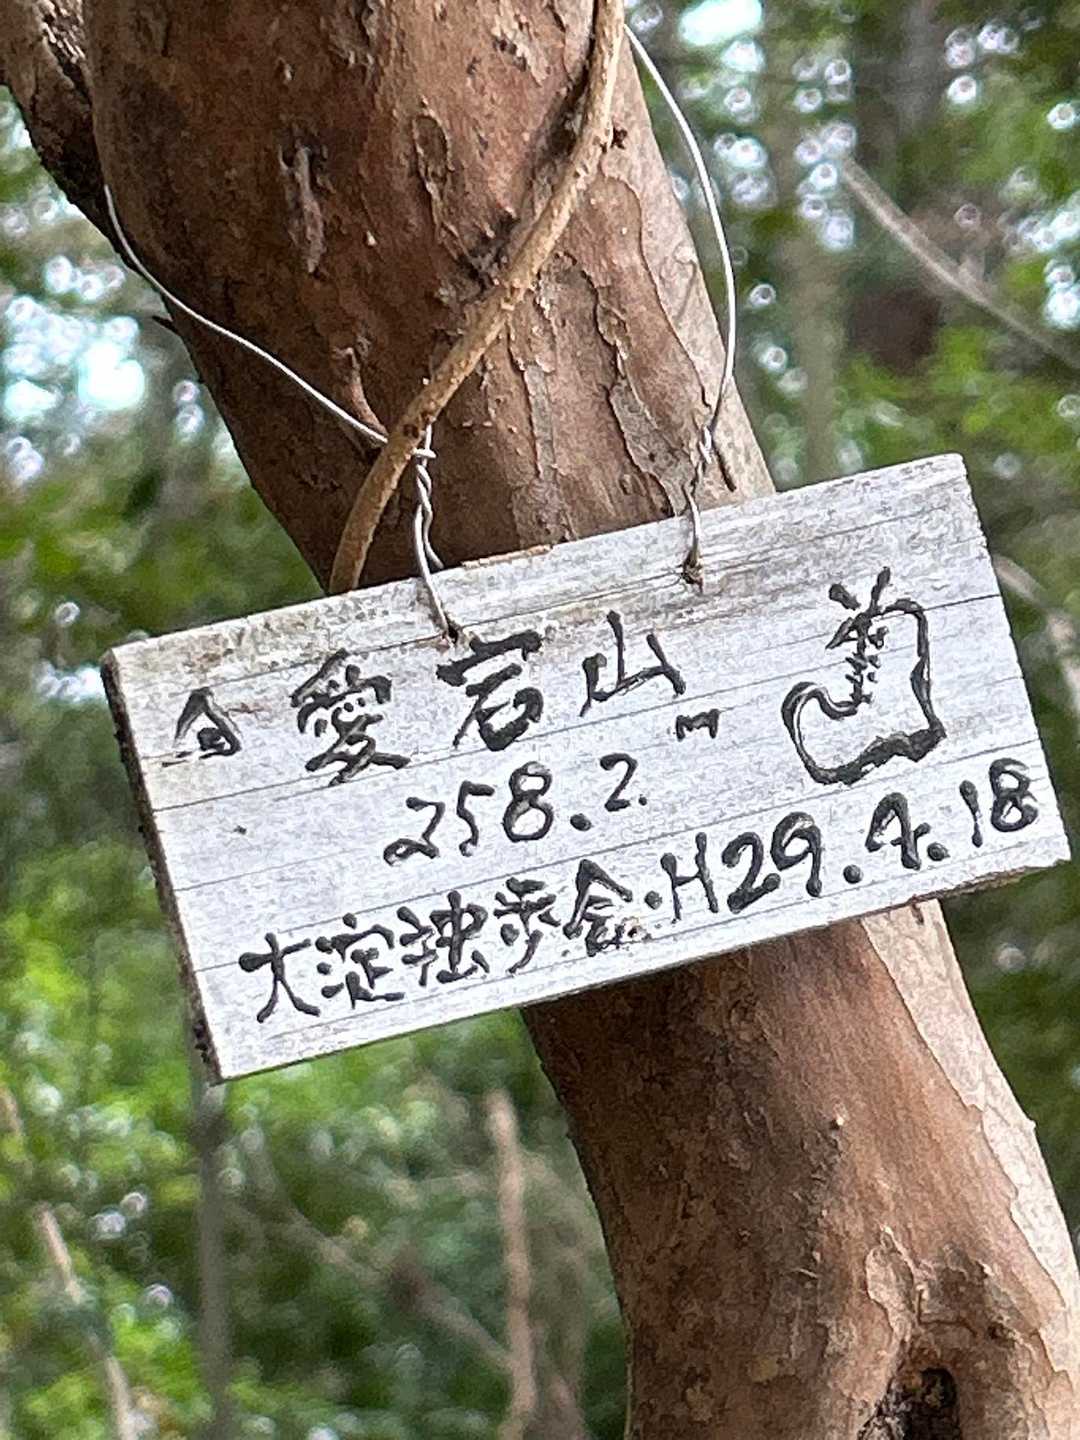 愛宕山
258.2m
大淀独歩会・H29.4.18